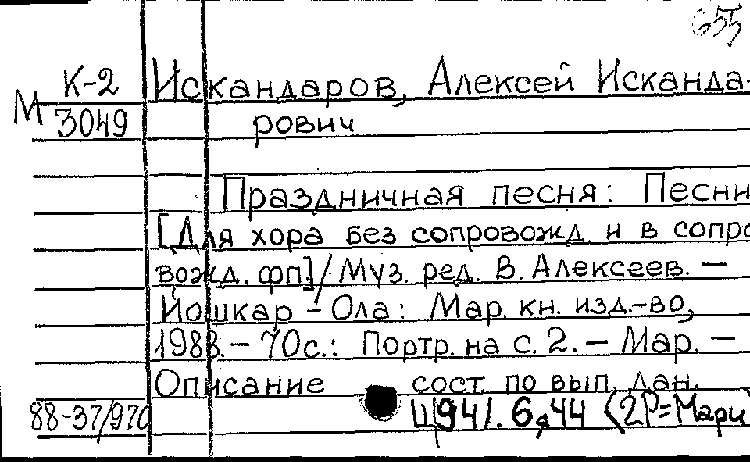 655
К-2 Искандаров, Алексей Исканда-
М 3049 рович
Праздничная песня: Песни
[Для хора без сопровожд. и в сопро
вожд. фп]/Муз. ред. В. Алексеев. –
Йошкар-Ола: Мар. кн. изд.-во,
1988. – 70с.: Портр. на с. 2. – Мар. –
Описание сост. по вып. дан.
88-37/970 Щ941.6я44 (2Р=Мари